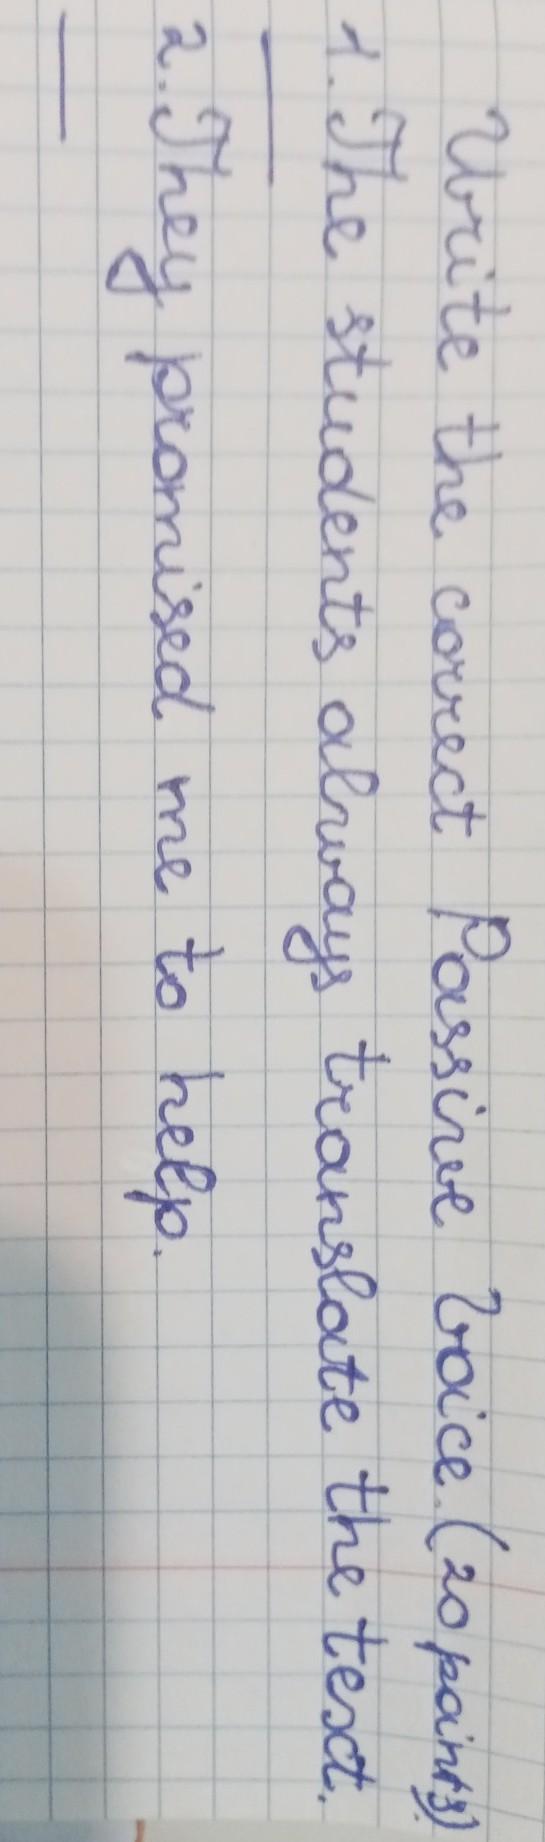 Write the correct Passive Voice. (20 points).
1. The students always translate the text.
2. They promised me to help.